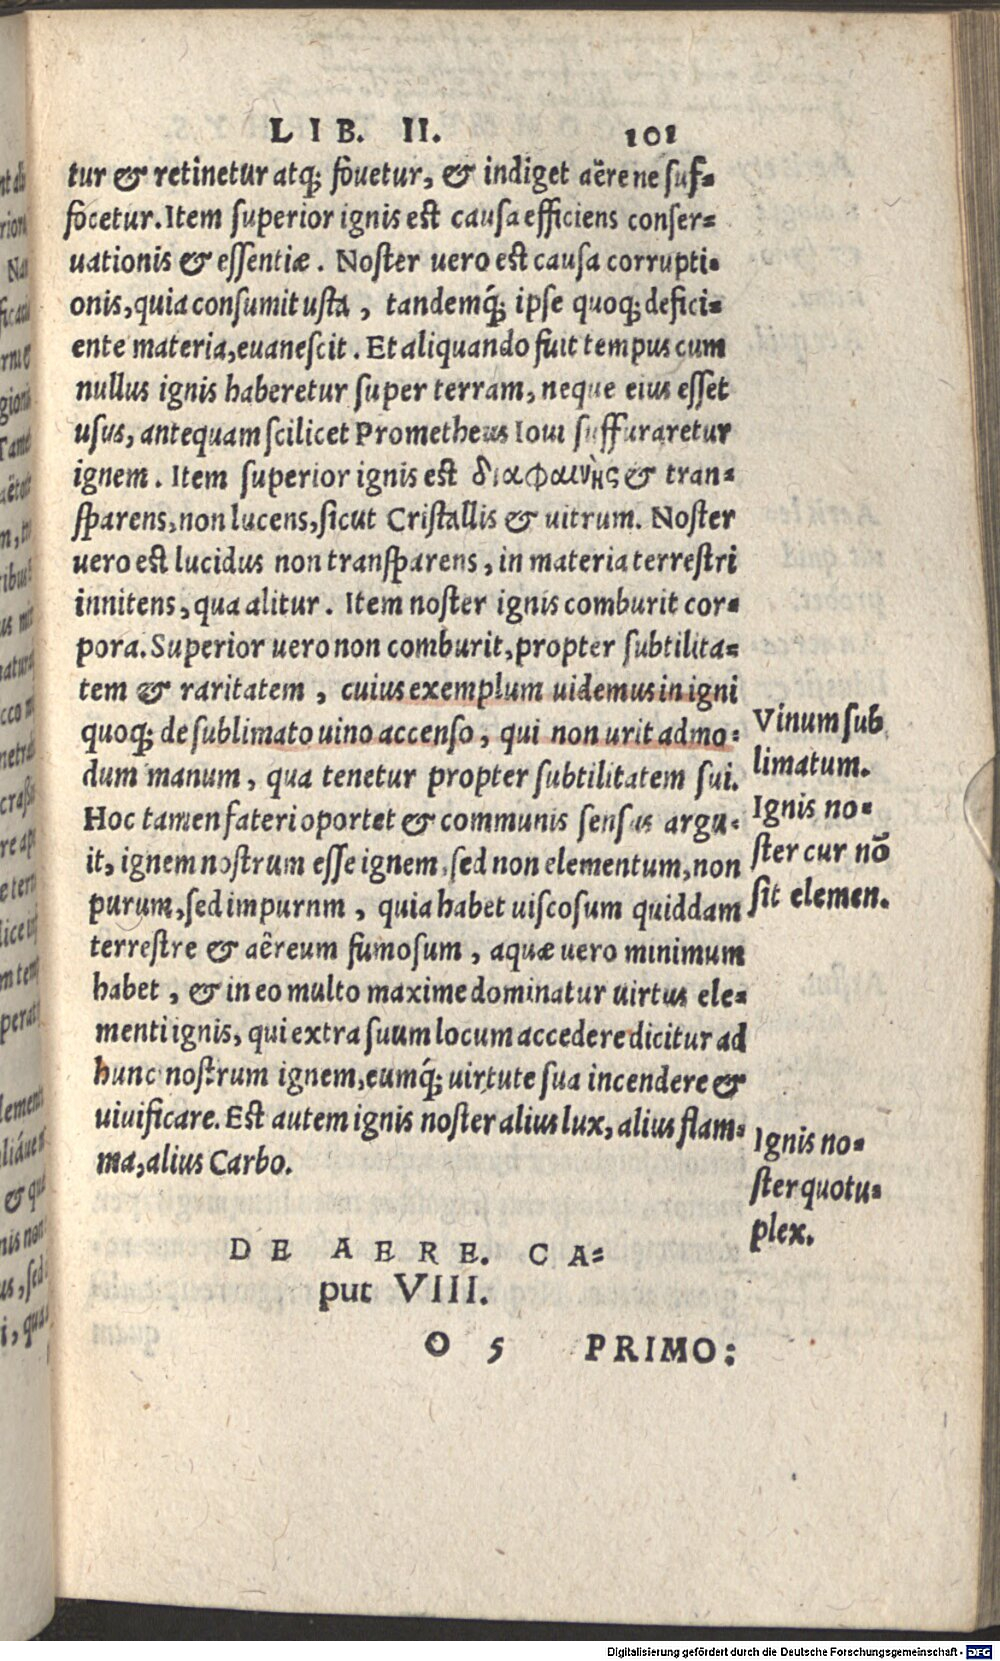 LIB. II. 101
tur & retinetur atq; fouetur, & indiget aëre ne suf-
focetur. Item superior ignis est causa efficiens conser-
uationis & essentiæ. Noster uero est causa corrupti-
onis, quia consumit usta, tandemq́; ipse quoq; defici-
ente materia, euanescit. Et aliquando fuit tempus cum
nullus ignis haberetur super terram, neque eius esset
usus, antequam scilicet Prometheus Ioui suffuraretur
ignem. Item superior ignis est διαφαινὴς & tran-
sparens, non lucens, sicut Cristallis & uitrum. Noster
uero est lucidus non transparens, in materia terrestri
innitens, qua alitur. Item noster ignis comburit cor-
pora. Superior uero non comburit, propter subtilita-
tem & raritatem, cuius exemplum uidemus in igni
quoq; de sublimato uino accenso, qui non urit admo-
dum manum, qua tenetur propter subtilitatem sui.
Hoc tamen fateri oportet & communis sensus argu-
it, ignem nostrum esse ignem, sed non elementum, non
purum, sed impurnm, quia habet uiscosum quiddam
terrestre & aëreum fumosum, aquæ uero minimum
habet, & in eo multo maxime dominatur uirtus ele-
menti ignis, qui extra suum locum accedere dicitur ad
hunc nostrum ignem, eumq́; uirtute sua incendere &
uiuificare. Est autem ignis noster alius lux, alius flam-
ma, alius Carbo.
Vinum sub
limatum.
Ignis no-
ster cur nō
sit elemen.
Ignis no-
ster quotu-
plex.
DE AERE. CA-
put VIII.
O 5 PRIMO:
Digitalisierung gefördert durch die Deutsche Forschungsgemeinschaft - DFG